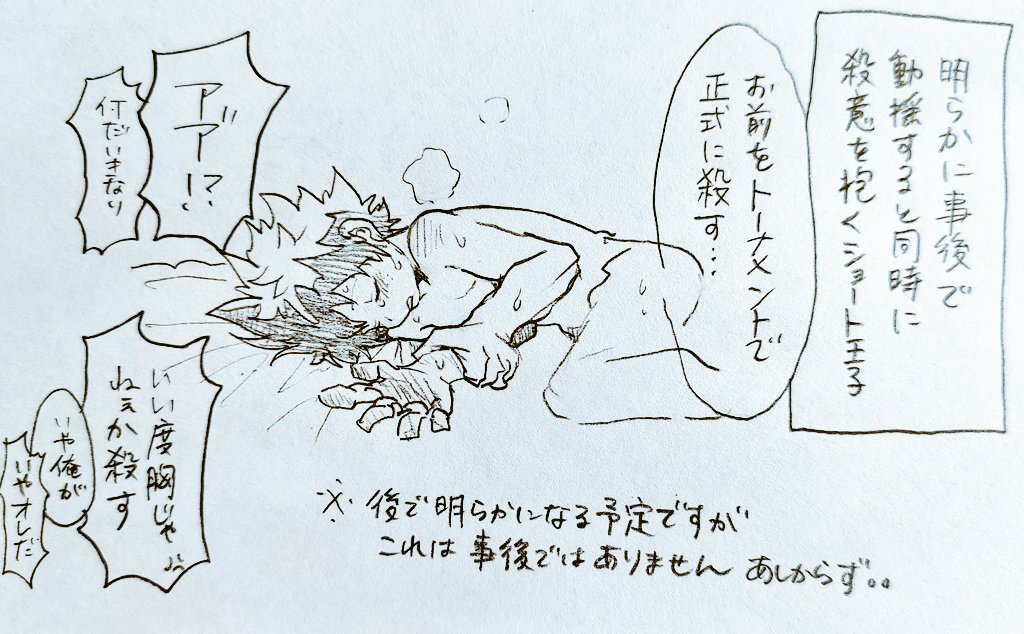 明らかに事後で
動揺すると同時に
殺意を抱くショート王子
お前をトーナメントで
正式に殺す…
アア゛!?
何だいきなり
いい度胸じゃ
ねぇか殺す
いや俺が
いやオレだ
※後で明らかになる予定ですが
これは事後ではありません あしからず。。